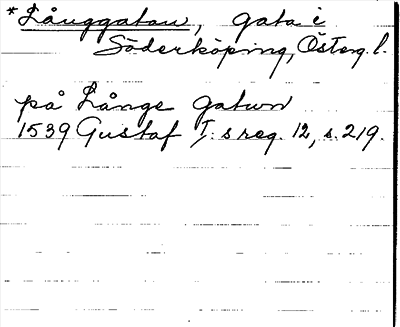 *Långgatan, gata i
Söderköping, Österg. l.
på Långe gatwn
1539 Gustaf I:s reg. 12, s. 219.